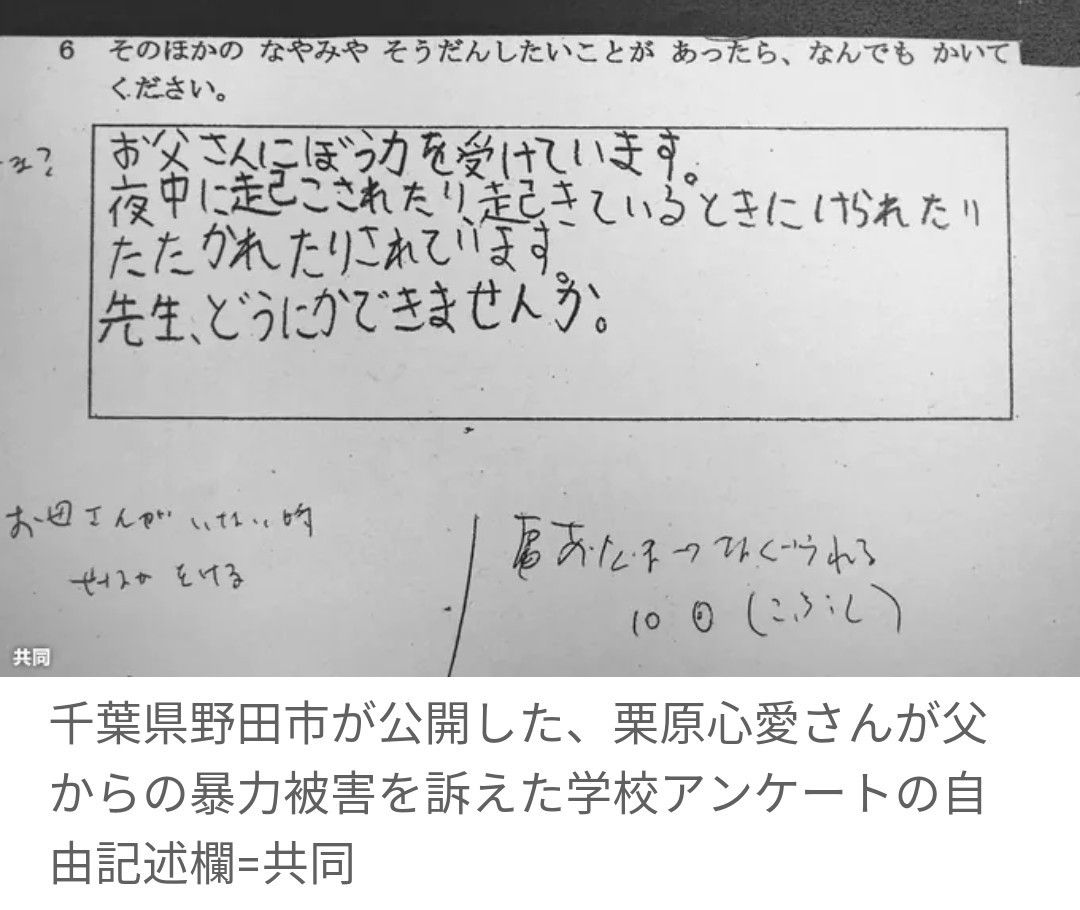 6 そのほかの なやみや そうだんしたいことが あったら、なんでも かいて
ください。
お父さんにぼう力を受けています。
夜中に起こされたり、起きているときにけられたり
たたかれたりされています。
先生、どうにかできませんか。
お母さんがいない時
あたま→なぐられる
10回(こぶし)
共同
千葉県野田市が公開した、栗原心愛さんが父
からの暴力被害を訴えた学校アンケートの自
由記述欄=共同